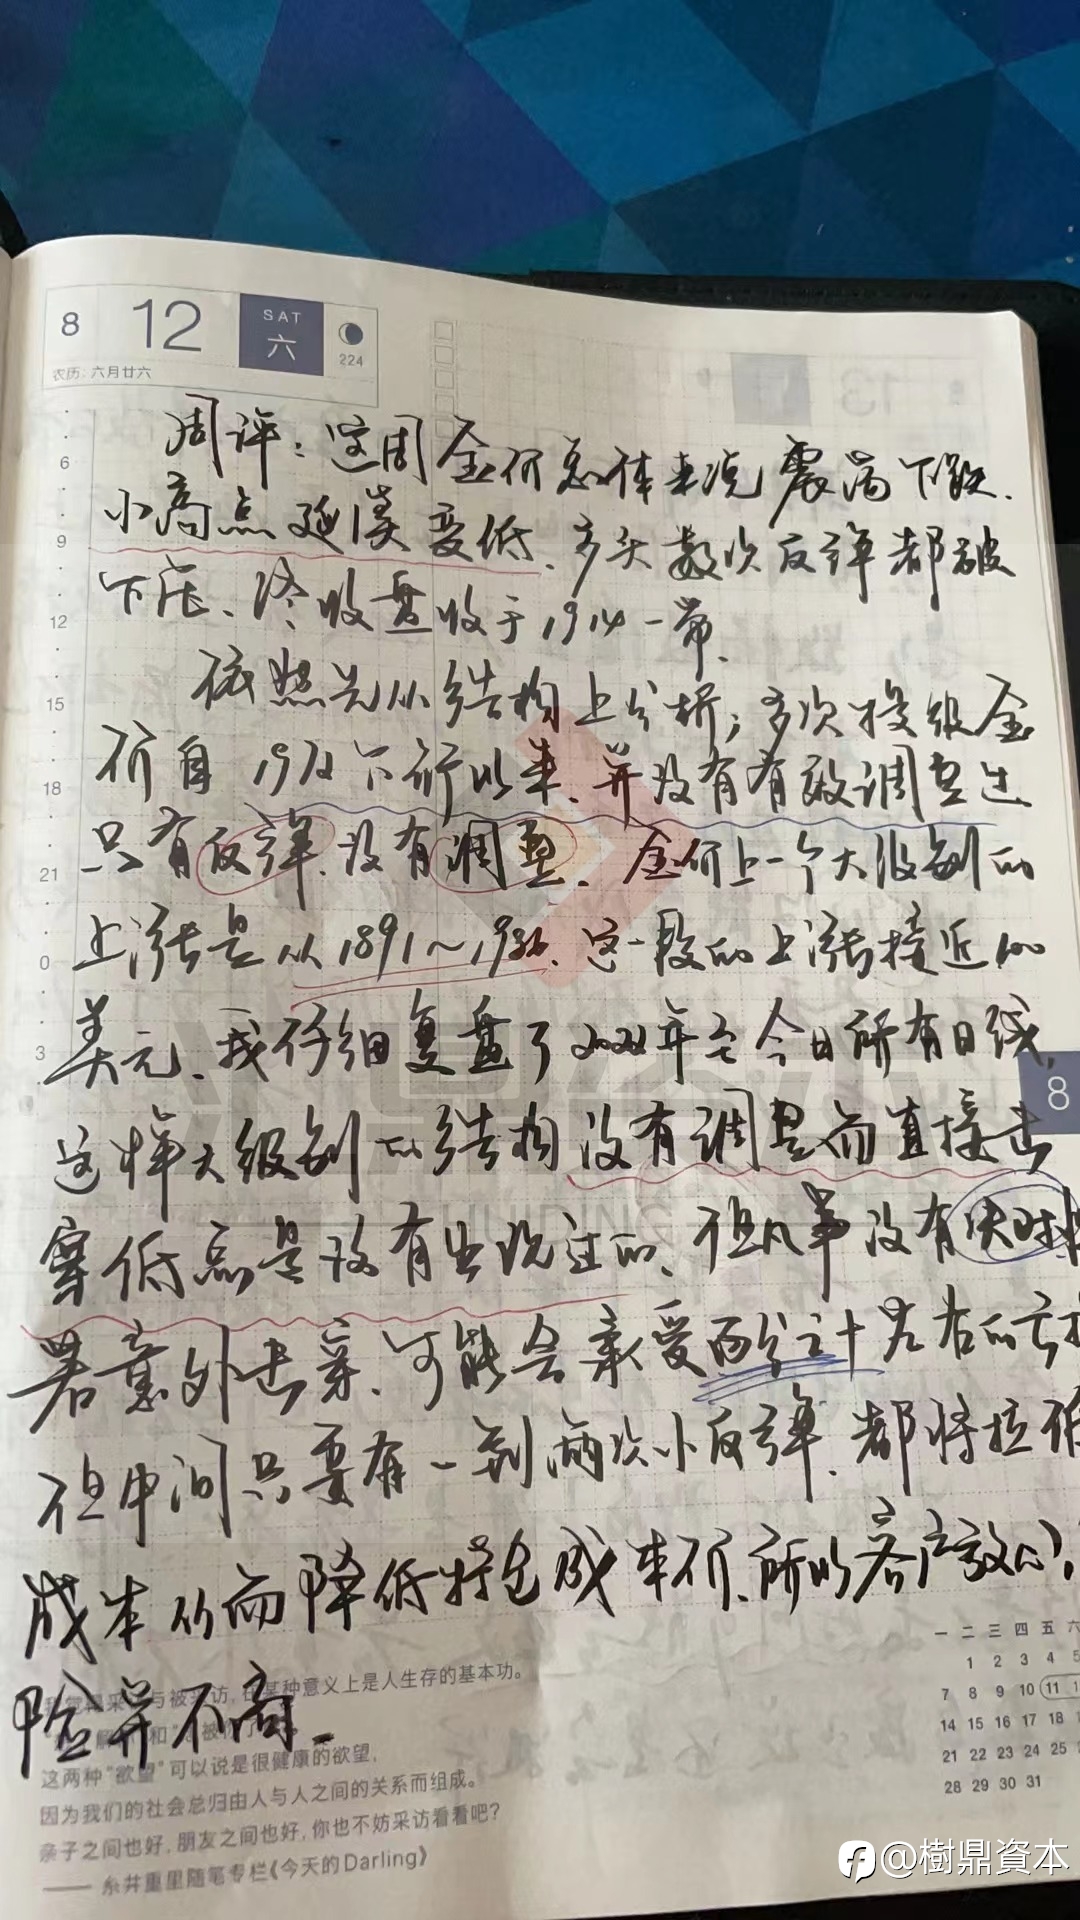 8 12 SAT 六 224
农历:六月廿六
周评:这周金价总体来说震荡下跌.
小高点延续变低、多头数次反弹都被
下压、终收盘收于1914一带.
依照先从结构上分析;多次接级金
价自 下行以来、并没有有效调整过
只有反弹.没有调整、金价上一个大级别的
上涨是从1891~1986、这一段的上涨接近100
美元、我仔细复盘了 年至今日所有日线,
这样大级别的结构没有调整而直接击
穿低点是没有出现过的、但凡事没有
若意外击穿.可能会承受百分之十左右的亏
但中间只要有一到两次小反弹.都将拉低
成本从而降低持仓成本价、所以客户放心,
险并不高.
6
9
12
15
18
21
0
3
8
与被 访,在某种意义上是人生存的基本功。
这两种"欲望"可以说是很健康的欲望,
因为我们的社会总归由人与人之间的关系而组成。
亲子之间也好,朋友之间也好,你也不妨采访看看吧?
—— 糸井重里随笔专栏《今天的Darling》
一 二 三 四 五 六
1 2 3 4 5
7 8 9 10 11 1
14 15 16 17 18
21 22 23 24 25
28 29 30 31
@樹鼎資本